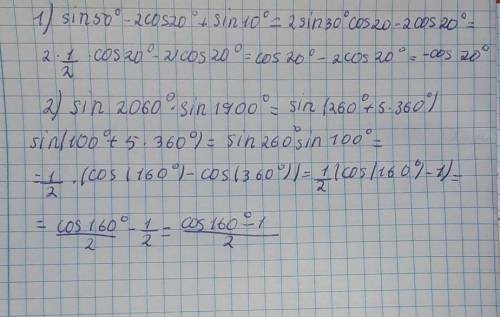 1) sin50° - 2cos20° + sin10° = 2sin30°cos20 - 2cos20° =
2 · 1/2 cos20° - 2cos20° = cos20° - 2cos20° = -cos20°
2) sin 2060° · sin 1900° = sin(260° + 5·360°)
sin(100° + 5·360°) = sin260° sin100° =
= 1/2 · (cos(160°) - cos(360°)) = 1/2 (cos(160° - 1) =
= cos160°/2 - 1/2 = cos160° - 1/2